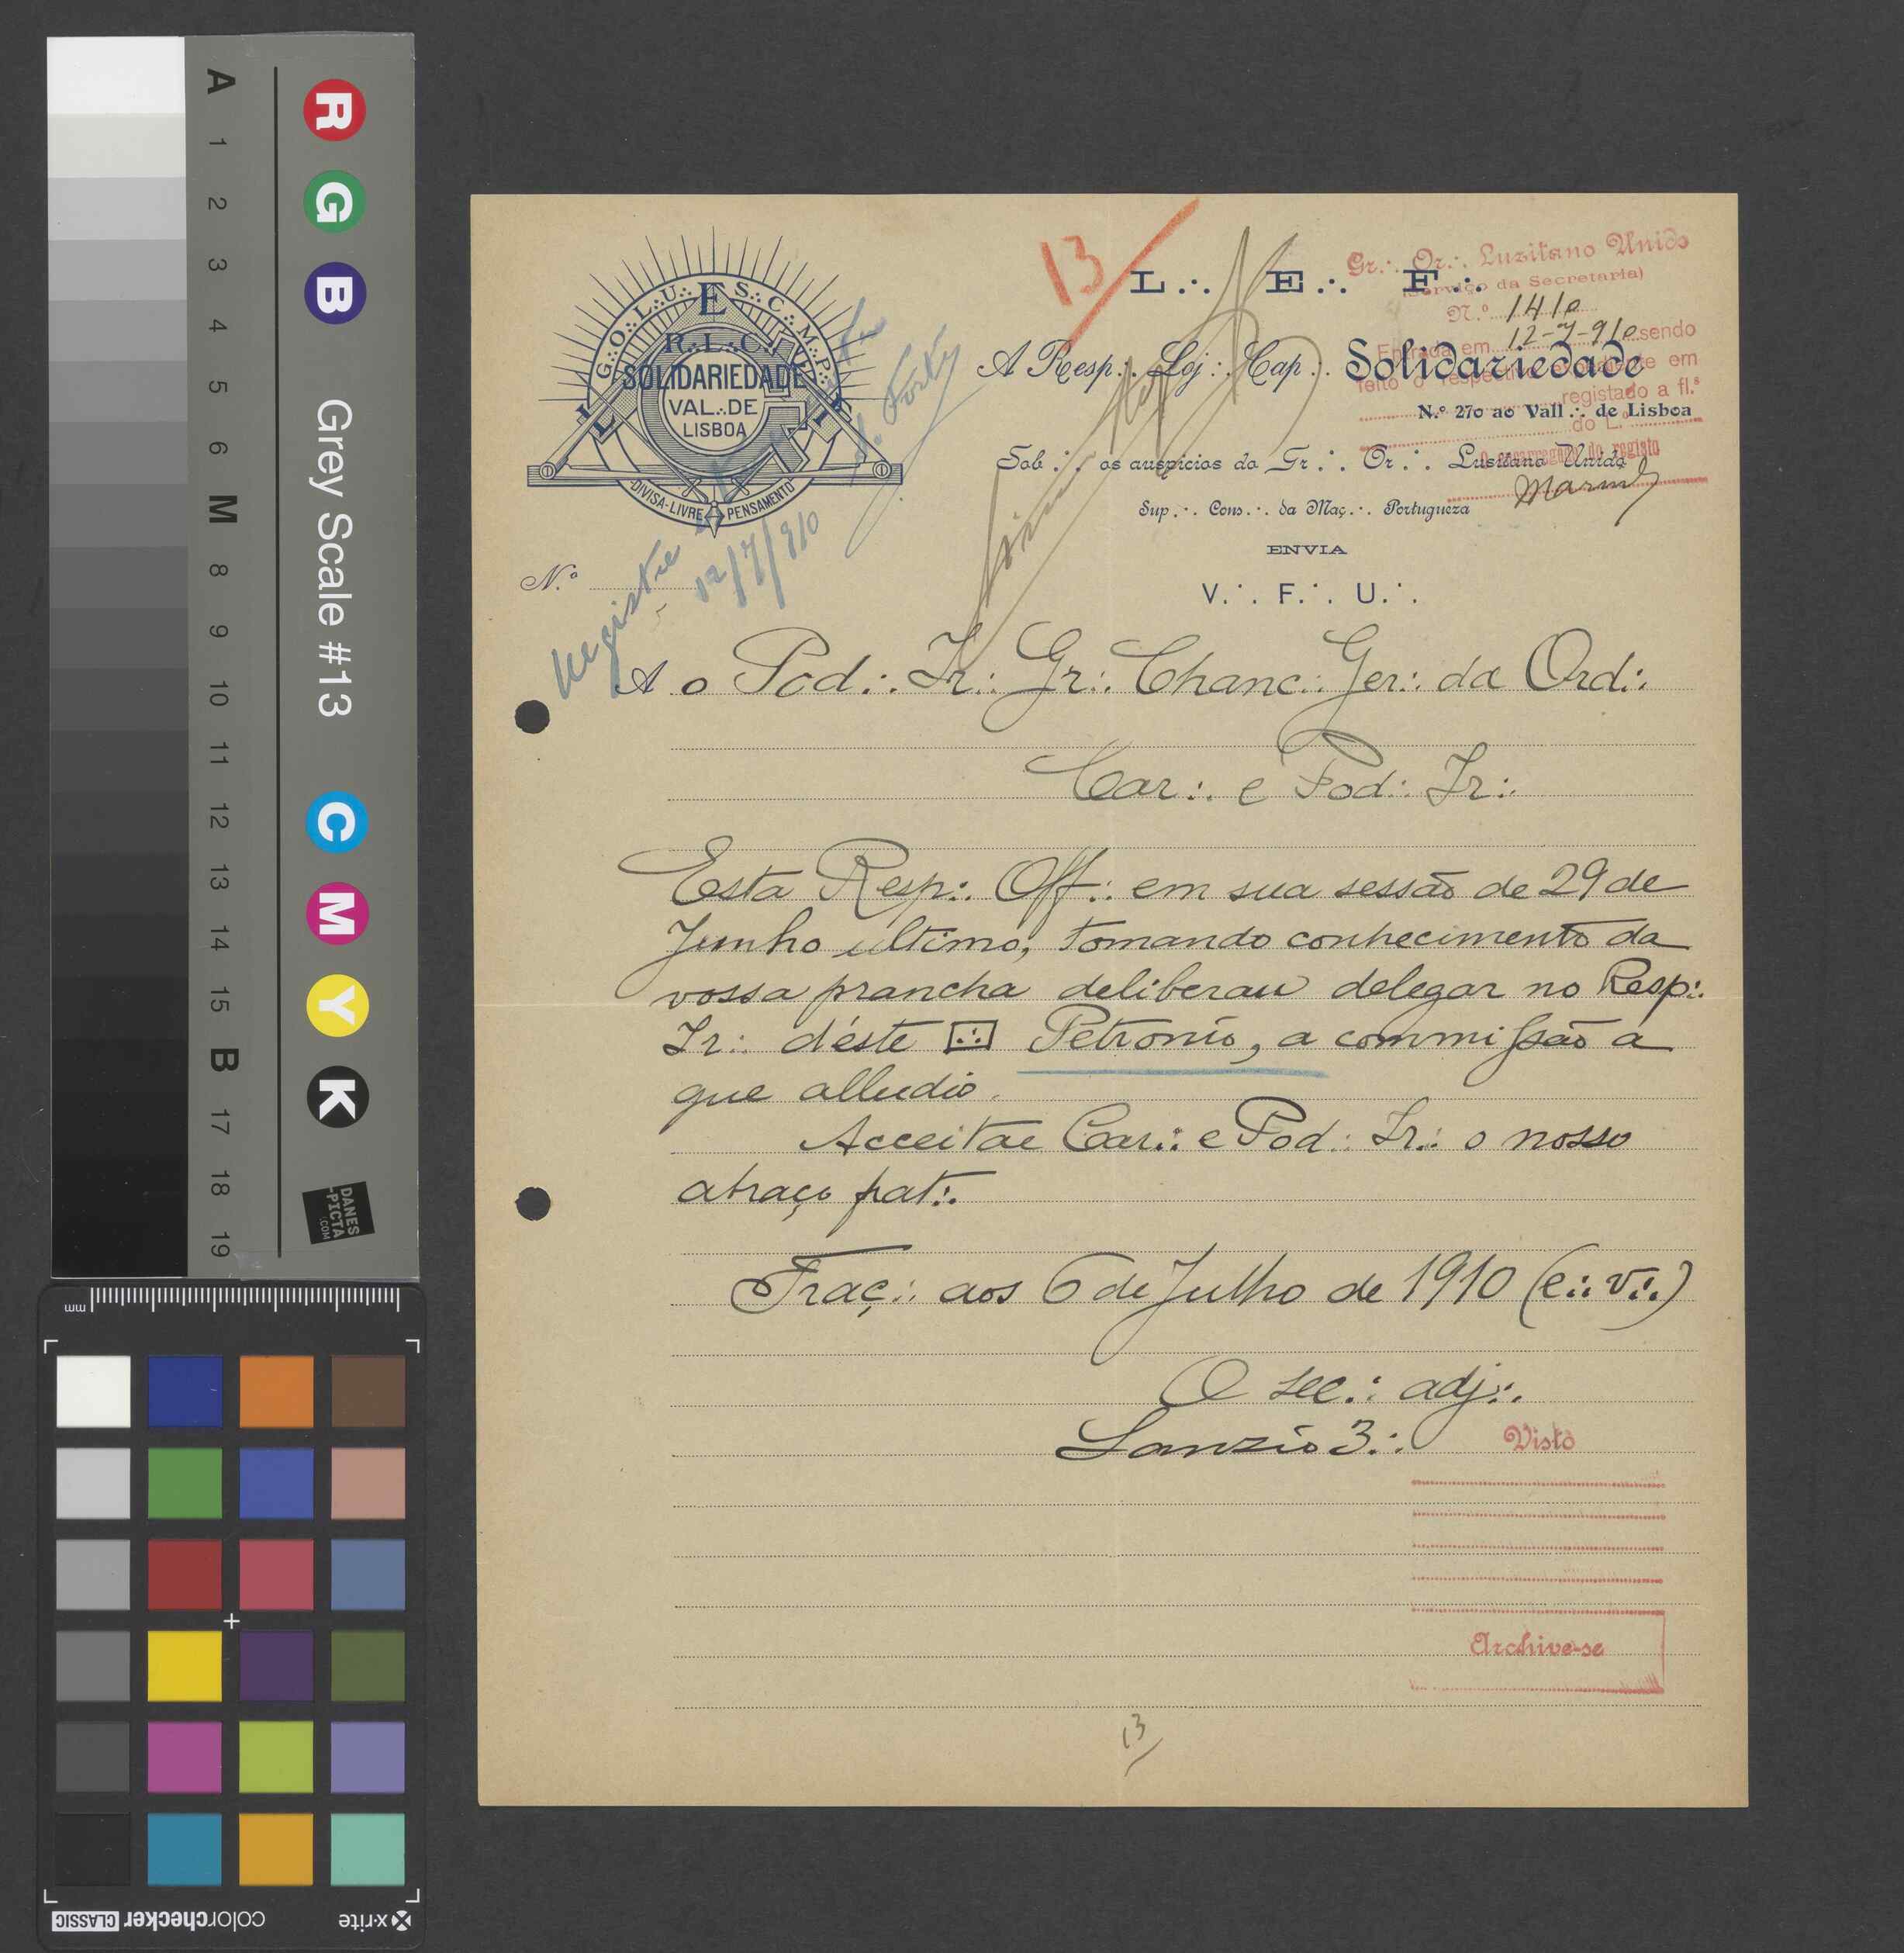 A
1
2
3
4
5
6
M
8
9
10
11
12
13
14
15
B
17
18
19
R G B
Grey Scale #13
C M Y K
DANES
-PICTA
.COM
mm
x-rite
colorchecker CLASSIC
13
L∴ E∴ F∴
G∴O∴L∴U∴ S∴C∴M∴P∴
E
L I
R∴L∴C∴
SOLIDARIEDADE
VAL∴DE
LISBOA
DIVISA-LIVRE PENSAMENTO
Gr∴ Or∴ Luzitano Unido
(Serviço da Secretaria)
N.º 1410
Entrada em 12-7-910 sendo
feito o respectivo expediente em
registado a fl.ˢ
do L.º
O encarregado do registo
A Resp∴ Loj∴ Cap∴ Solidariedade
N.º 270 ao Vall∴ de Lisboa
Sob∴ os auspicios do Gr∴ Or∴ Lusitano Unido
Sup∴ Cons∴ da Maç∴ Portugueza
ENVIA
V∴ F∴ U∴
N.º
Registe
12/7/910
A o Pod∴ Ir∴ Gr∴ Chanc∴ Ger∴ da Ord∴
Car∴ e Pod∴ Ir∴
Esta Resp∴ Off∴ em sua sessão de 29 de
Junho último, tomando conhecimento da
vossa prancha deliberau delegar no Resp∴
Ir∴ déste [∴] Petronio, a commissão a
que alludio.
Acceitae Car∴ e Pod∴ Ir∴ o nosso
abraço frat∴
Traç∴ aos 6 de Julho de 1910 (e∴ v∴)
O sec∴ adj∴
Lanzio 3∴
Visto
Archive-se
13